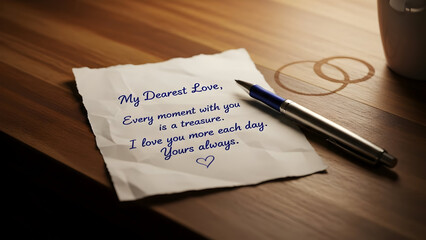 My Dearest Love,
Every moment with you
is a treasure.
I love you more each day.
Yours always.